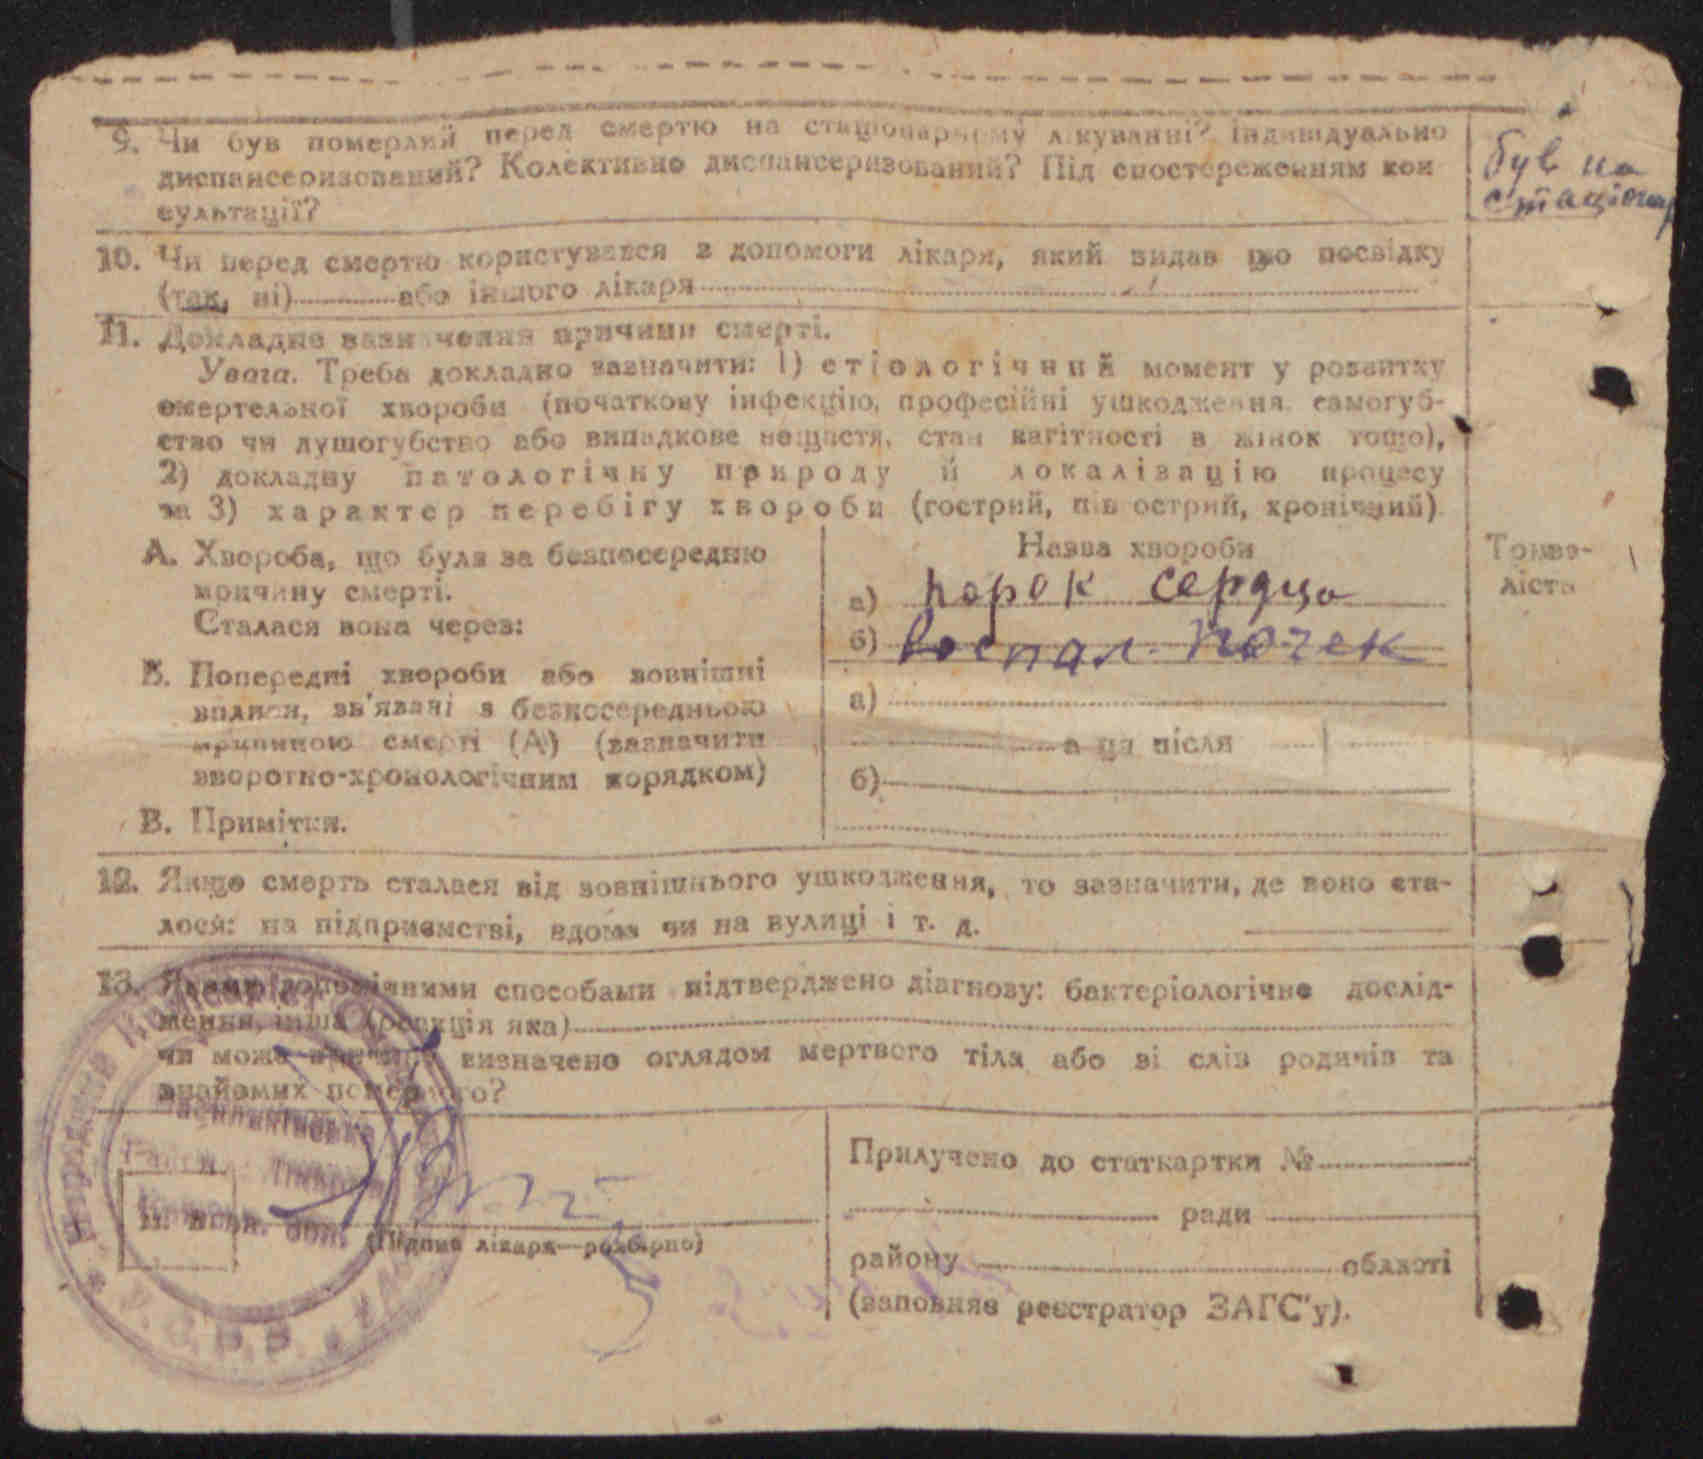 9. Чи був померлий перед смертю на стаціонарному лікуванні? Індивідуально
диспансеризований? Колективно диспансеризований? Під спостереженням кон
сультації?
був на
стаціонар
10. Чи перед смертю користувався з допомоги лікаря, який видав цю посвідку
(так, ні) або іншого лікаря
11. Докладне зазначення причини смерті.
Увага. Треба докладно зазначити: 1) етіологічний момент у розвитку
смертельної хвороби (початкову інфекцію, професійні ушкодження, самогуб-
ство чи душогубство або випадкове нещастя, стан вагітності в жінок тощо),
2) докладну патологічну природу й локалізацію процесу
та 3) характер перебігу хвороби (гострий, підгострий, хронічний)
А. Хвороба, що була за безпосередню
причину смерті.
Сталася вона через:
Назва хвороби
а) порок сердца
б) воспал. почек
Трива-
лість
Б. Попередні хвороби або зовнішні
впливи, зв'язані з безпосередньою
причиною смерті (А) (зазначити
зворотно-хронологічним порядком)
а)
а ця після
б)
В. Примітки.
12. Якщо смерть сталася від зовнішнього ушкодження, то зазначити, де воно ста-
лося: на підприємстві, вдома чи на вулиці і т. д.
13. Якими допоміжними способами підтверджено діагнозу: бактеріологічне дослід-
ження, інша (реакція яка)
чи може причину визначено оглядом мертвого тіла або зі слів родичів та
знайомих померлого?
(Підпис лікаря—розбірно)
Прилучено до статкартки №
ради
району області
(заповняє реєстратор ЗАГС'у).